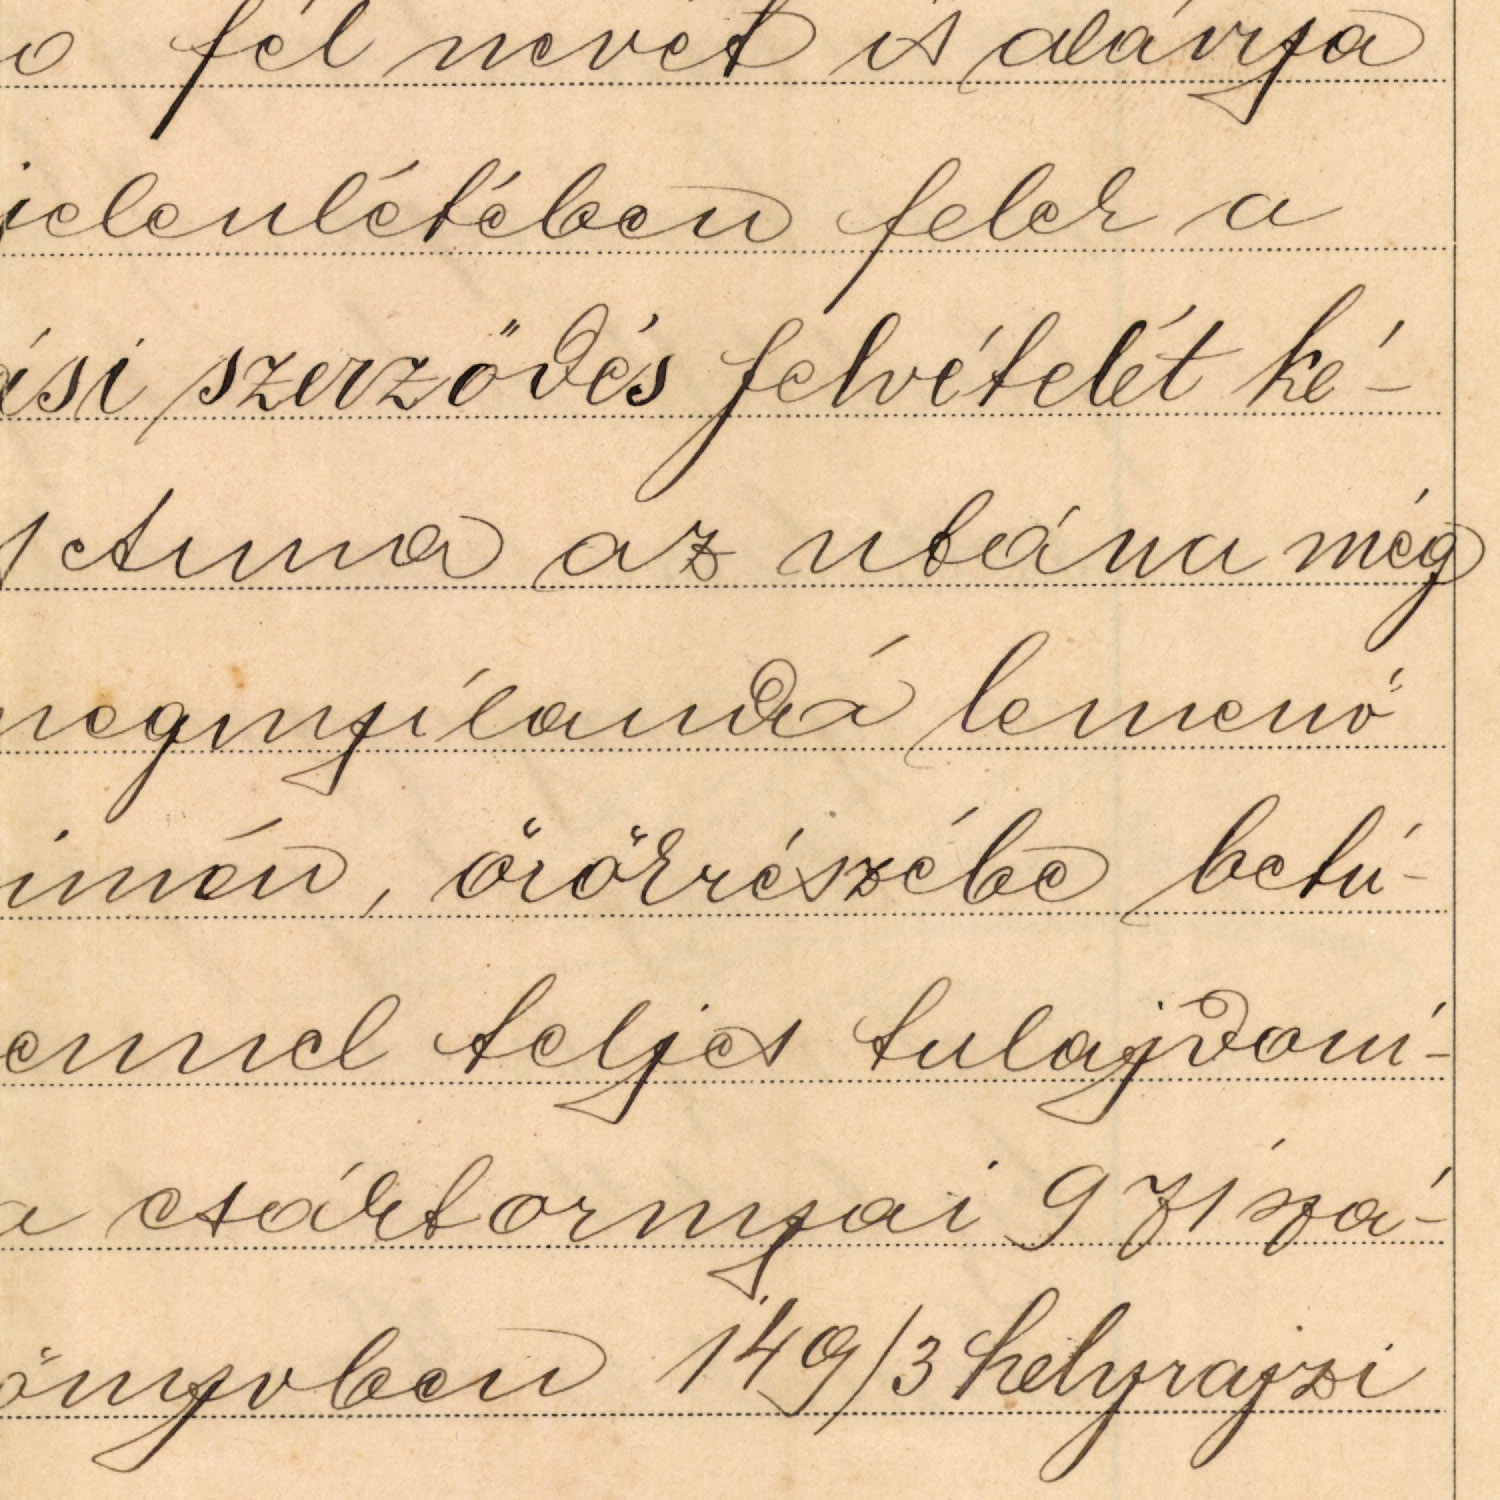 ó fél nevét is aláírja
jelenlétében felek a
ási szerződés felvételét ké-
Anna az utána még
megnyílandó lemenő
címén, örökrészébe betú-
ennel teljes tulajdoni-
a csáktornyai 971 szá-
könyvben 149/3 helyrajzi